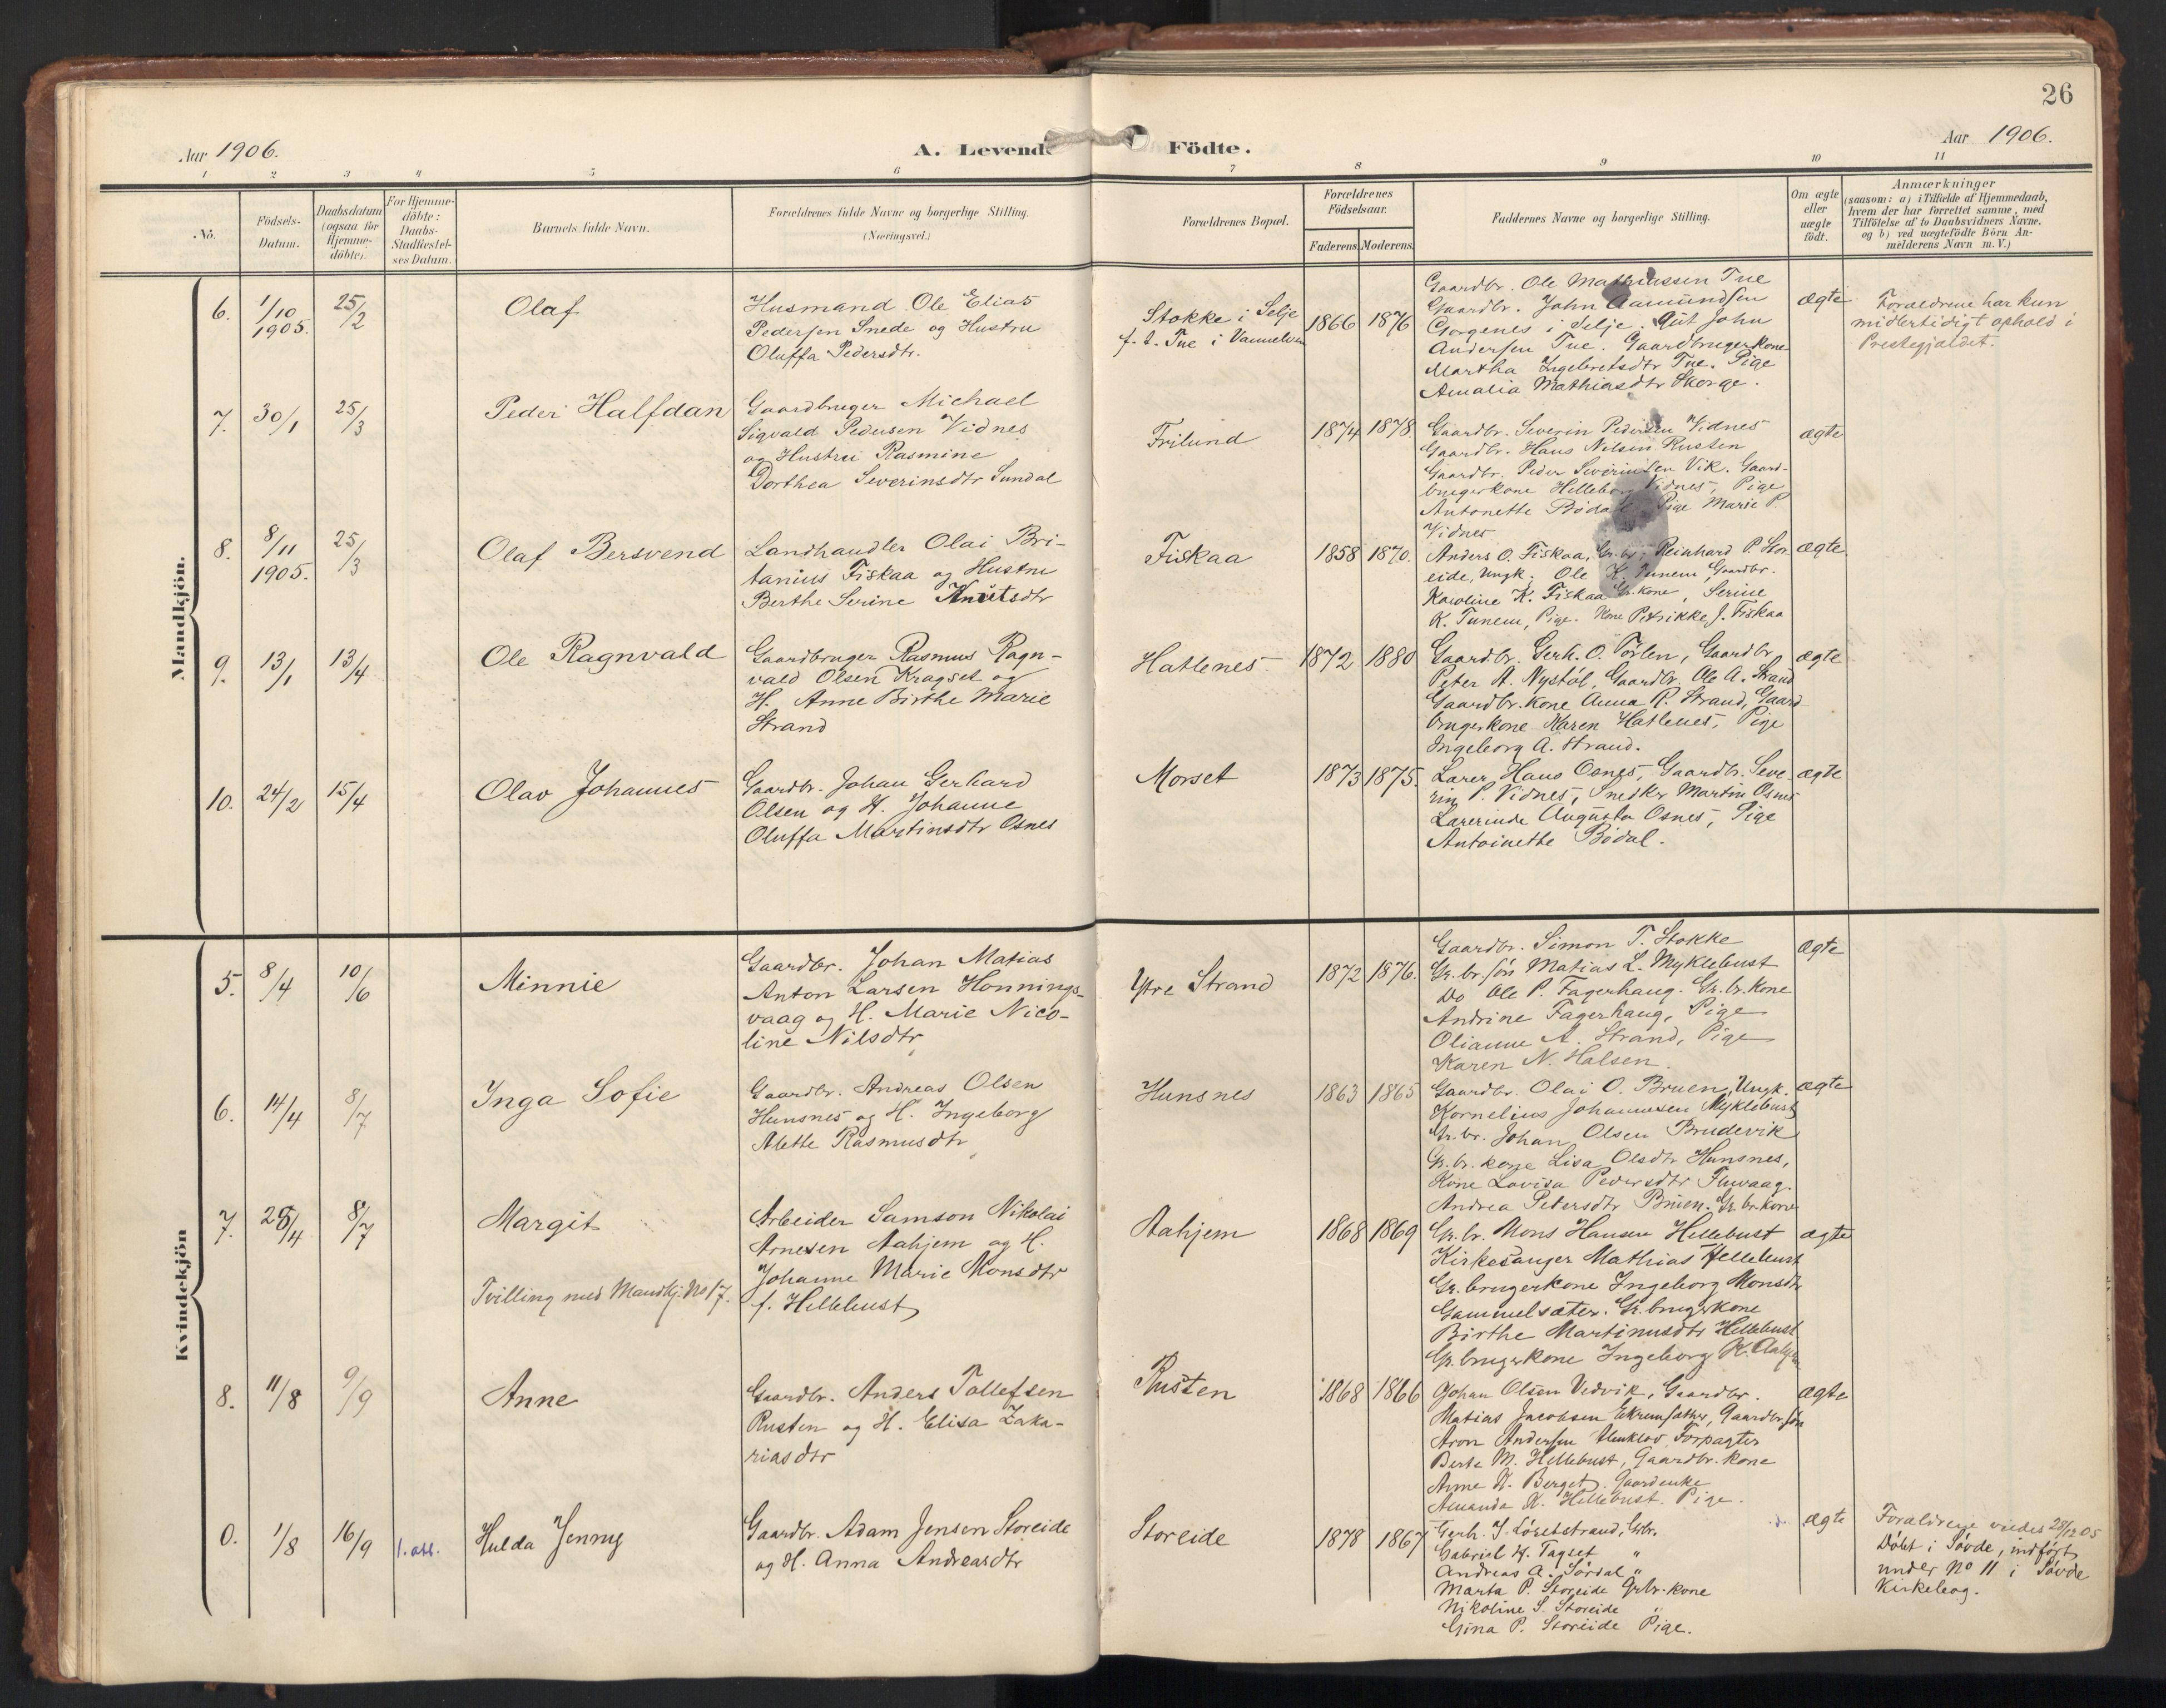 26
Aar 1906.
A. Levende Födte.
Aar 1906.
1 2 3 4 5 6 7 8 9 10 11
No.
Födsels-
Datum.
Daabsdatum
(ogsaa for
Hjemme-
döbte).
For Hjemme-
döbte:
Daabs-
Stadfæstel-
ses Datum.
Barnets fulde Navn.
Forældrenes fulde Navne og borgerlige Stilling.
(Næringsvei.)
Forældrenes Bopæl.
Forældrenes
Födselsaar.
Faderens. Moderens.
Faddernes Navne og borgerlige Stilling.
Om ægte
eller
uægte
födt.
Anmærkninger
(saasom: a) i Tilfælde af Hjemmedaab,
hvem der har forrettet samme, med
Tilföielse af to Daabsvidners Navne.
og b) ved uægtefödte Börn An-
melderens Navn m.V.)
Mandkjön.
6.
1/10
1905.
25/2
Olaf
Husmand Ole Elias
Pedersen Snede og Hustru
Oluffa Pedersdtr.
Stokke i Selje
f. t. Tue i Vannelven
1866
1876
Gaardbr. Ole Mathiassen Tue
Gaardbr. John Aamundsen
i Selje. Gut John
Andersen Tue. Gaardbrugerkone
Martha Ingebretsdtr Tue. Pige
Amalia Mathiasdtr Skorge.
ægte
Forældrene har kun
midlertidigt ophold i
Prestegjældet.
7.
30/1
25/3
Peder Halfdan
Gaardbruger Michael
Sigvald Pedersen Vidnes
og Hustru Rasmine
Dorthea Severinsdtr Sundal
Frilund
1874
1878.
Gaardbr. Severin Pedersen Vidnes
Gaardbr. Hans Nilsen Rusten
Gaardbr. Peder Severinsen Vik. Gaard-
brugerkone Helleborg Vidnes, Pige
Antonette Bödal Pige Marie P.
Vidnes
ægte
8.
8/11
1905.
25/3
Olaf Bersvend
Landhandler Olai Bri-
tanius Fiskaa og Hustru
Berthe Serine Knutsdtr
Fiskaa
1858
1870.
Anders O. Fiskaa, Gr.br; Reinhard P. Stor-
eide, Ungk. Ole K. Tunem, Gaardbr.
Karoline K. Fiskaa Gr.kone, Serine
K. Tunem, Pige. Kone Petrikke J. Fiskaa
ægte
9.
13/1
13/4
Ole Ragnvald
Gaardbruger Rasmus Ragn-
vald Olsen Kragset og
H. Anne Birthe Marie
Strand
Hatlenes
1872
1880
Gaardbr. Gerh. O. Törlen, Gaardbr.
Peter A. Nystöl, Gaardbr. Ole A. Strand
Gaardbr. kone Anna R. Strand, Gaard-
brugerkone Karen Hatlenes, Pige
Ingeborg A. Strand.
ægte
10.
24/2
15/4
Olav Johannes
Gaardbr. Johan Gerhard
Olsen og H. Johanne
Oluffa Martinsdtr Osnes
Morset
1873
1875.
Lærer Hans Osnes, Gaardbr. Seve-
rin P. Vidnes, Snedker Martin Osnes
Lærerinde Augusta Osnes, Pige
Antoinette Bödal.
ægte
Kvindekjön
5.
8/4
10/6
Minnie
Gaardbr. Johan Matias
Anton Larsen Honnings-
vaag og H. Marie Nico-
line Nilsdtr
Ytre Strand
1872
1876.
Gaardbr. Simon T. Stokke
Gr.br.sön Matias L. Myklebust
Do Ole P. Fagerhaug. Gr.br.kone
Andrine Fagerhaug, Pige
Olianne A. Strand, Pige
Karen N. Halsen.
ægte
6.
14/4
8/7
Inga Sofie
Gaardbr. Andreas Olsen
Hunsnes og H. Ingeborg
Alette Rasmusdtr
Hunsnes
1863
1865
Gaardbr. Olai O. Bruen, Ungk.
Kornelius Johannesen Myklebust
Gr.br. Johan Olsen Brudevik
Gr.br. kone Lisa Olsdtr Hunsnes,
Kone Lovisa Pedersdtr
Andrea Petersdtr Bruen. Gr.br.kone
ægte
7.
28/4
8/7
Margit
Tvilling med Mandkj. No 17.
Arbeider Samson Nikolai
Arnesen Aahjem og H.
Johanne Marie Monsdtr
f. Hellebust
Aahjem
1868
1869
Gr.br. Mons Hansen Hellebust
Kirkesanger Mathias Hellebust
Gr.brugerkone Ingeborg Monsdtr
Gammelsæter. Gr.brugerkone
Birthe Martinusdtr Hellebust
Gr.brugerkone Ingeborg K. Aahjem
ægte
8.
11/8
9/9
Anne
Gaardbr. Anders Tollefsen
Rusten og H. Elisa Zaka-
riasdtr
Rusten
1868
1866
Johan Olsen Vedvik, Gaardbr.
Matias Jacobsen Ekremsæther, Gaardbr.sön
Aron Andersen Forpagter
Berte M. Hellebust, Gaardbr. kone
Anne K. Berget, Gaardenke
Amanda K. Hellebust. Pige.
ægte
0.
1/8
16/9
Hulda Jenny
Gaardbr. Adam Jensen Storeide
og H. Anna Andreasdtr
Storeide
1878
1867
Gerh. J. Löseth­strand, Grbr.
Gabriel H. Tagset "
Andreas A. Sördal "
Marta P. Storeide Grbr. kone
Nikoline S. Storeide "
Gina P. Storeide Pige.
ægte
Forældrene viedes 28/12 05
Döbt i Sövde, indfört
under No 11 i Sövde
Kirkebog.